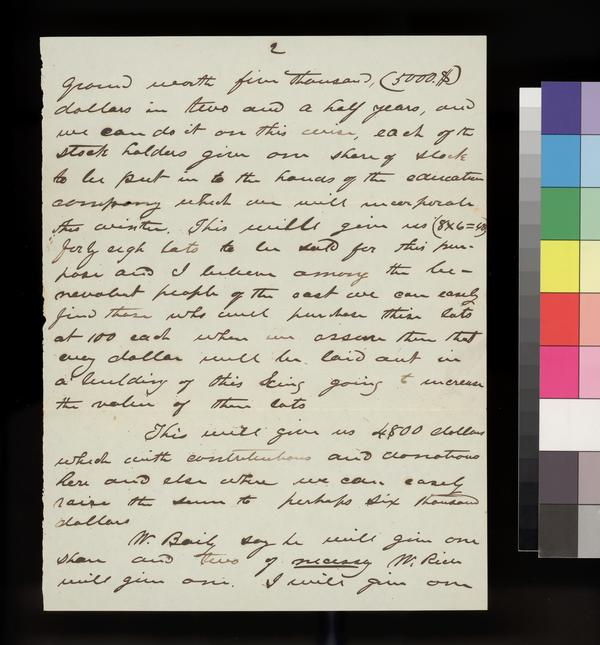 2
ground worth five thousand, (5000.$)
dollars in two and a half years, and
we can do it on this wise, each of the
stock holders give one share of stock
to be put in to the hands of the education
company which we will incorporate
this winter. This will give us (8X6=48)
forty eigh lots to be sold for this pur-
pose and I believe among the be-
nevolent people of the east we can easely
find those who will purchase these lots
at 100 each when we assure then that
evey dollar will be laid out in
a building of this king going t increase
the value of there lots
This will give us 4800 dollars
which with contributions and donations
here and else where we can easely
raise the sum to perhaps six thousand
dollars
W. Baily say he will give one
share and two if necessy W. Rice
will give one. I will give one